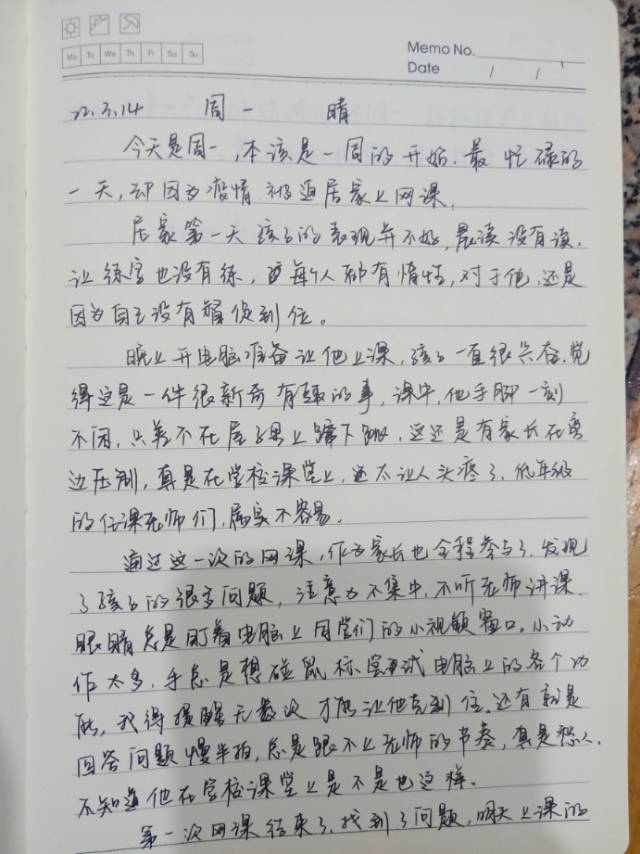 Memo No.
Mo Tu We Th Fr Sa Su
Date / /
22.3.14 周一 晴
今天是周一,本该是一周的开始,最忙碌的
一天,却因为疫情被迫居家上网课。
居家第一天孩子的表现并不好,晨读没有读,
让练字也没有练,每个人都有惰性,对于他,还是
因为自己没有督促到位。
晚上开电脑准备让他上课,孩子一直很兴奋,觉
得这是一件很新奇有趣的事,课中,他手脚一刻
不闲,只差不在屋子里上蹿下跳,这还是有家长在旁
边压制,真是在学校课堂上,还不让人头疼了,低年级
的任课老师们,属实不容易。
通过这一次的网课,作为家长也全程参与了,发现
了孩子的很多问题,注意力不集中,不听老师讲课,
眼睛总是盯着电脑上同学们的小视频窗口,小动
作太多,手总是想碰鼠标尝试电脑上的各个功
能,我得提醒无数次才能让他克制住,还有就是
回答问题慢半拍,总是跟不上老师的节奏,真是愁人,
不知道他在学校课堂上是不是也这样。
第一次网课结束了,找到了问题,明天上课的